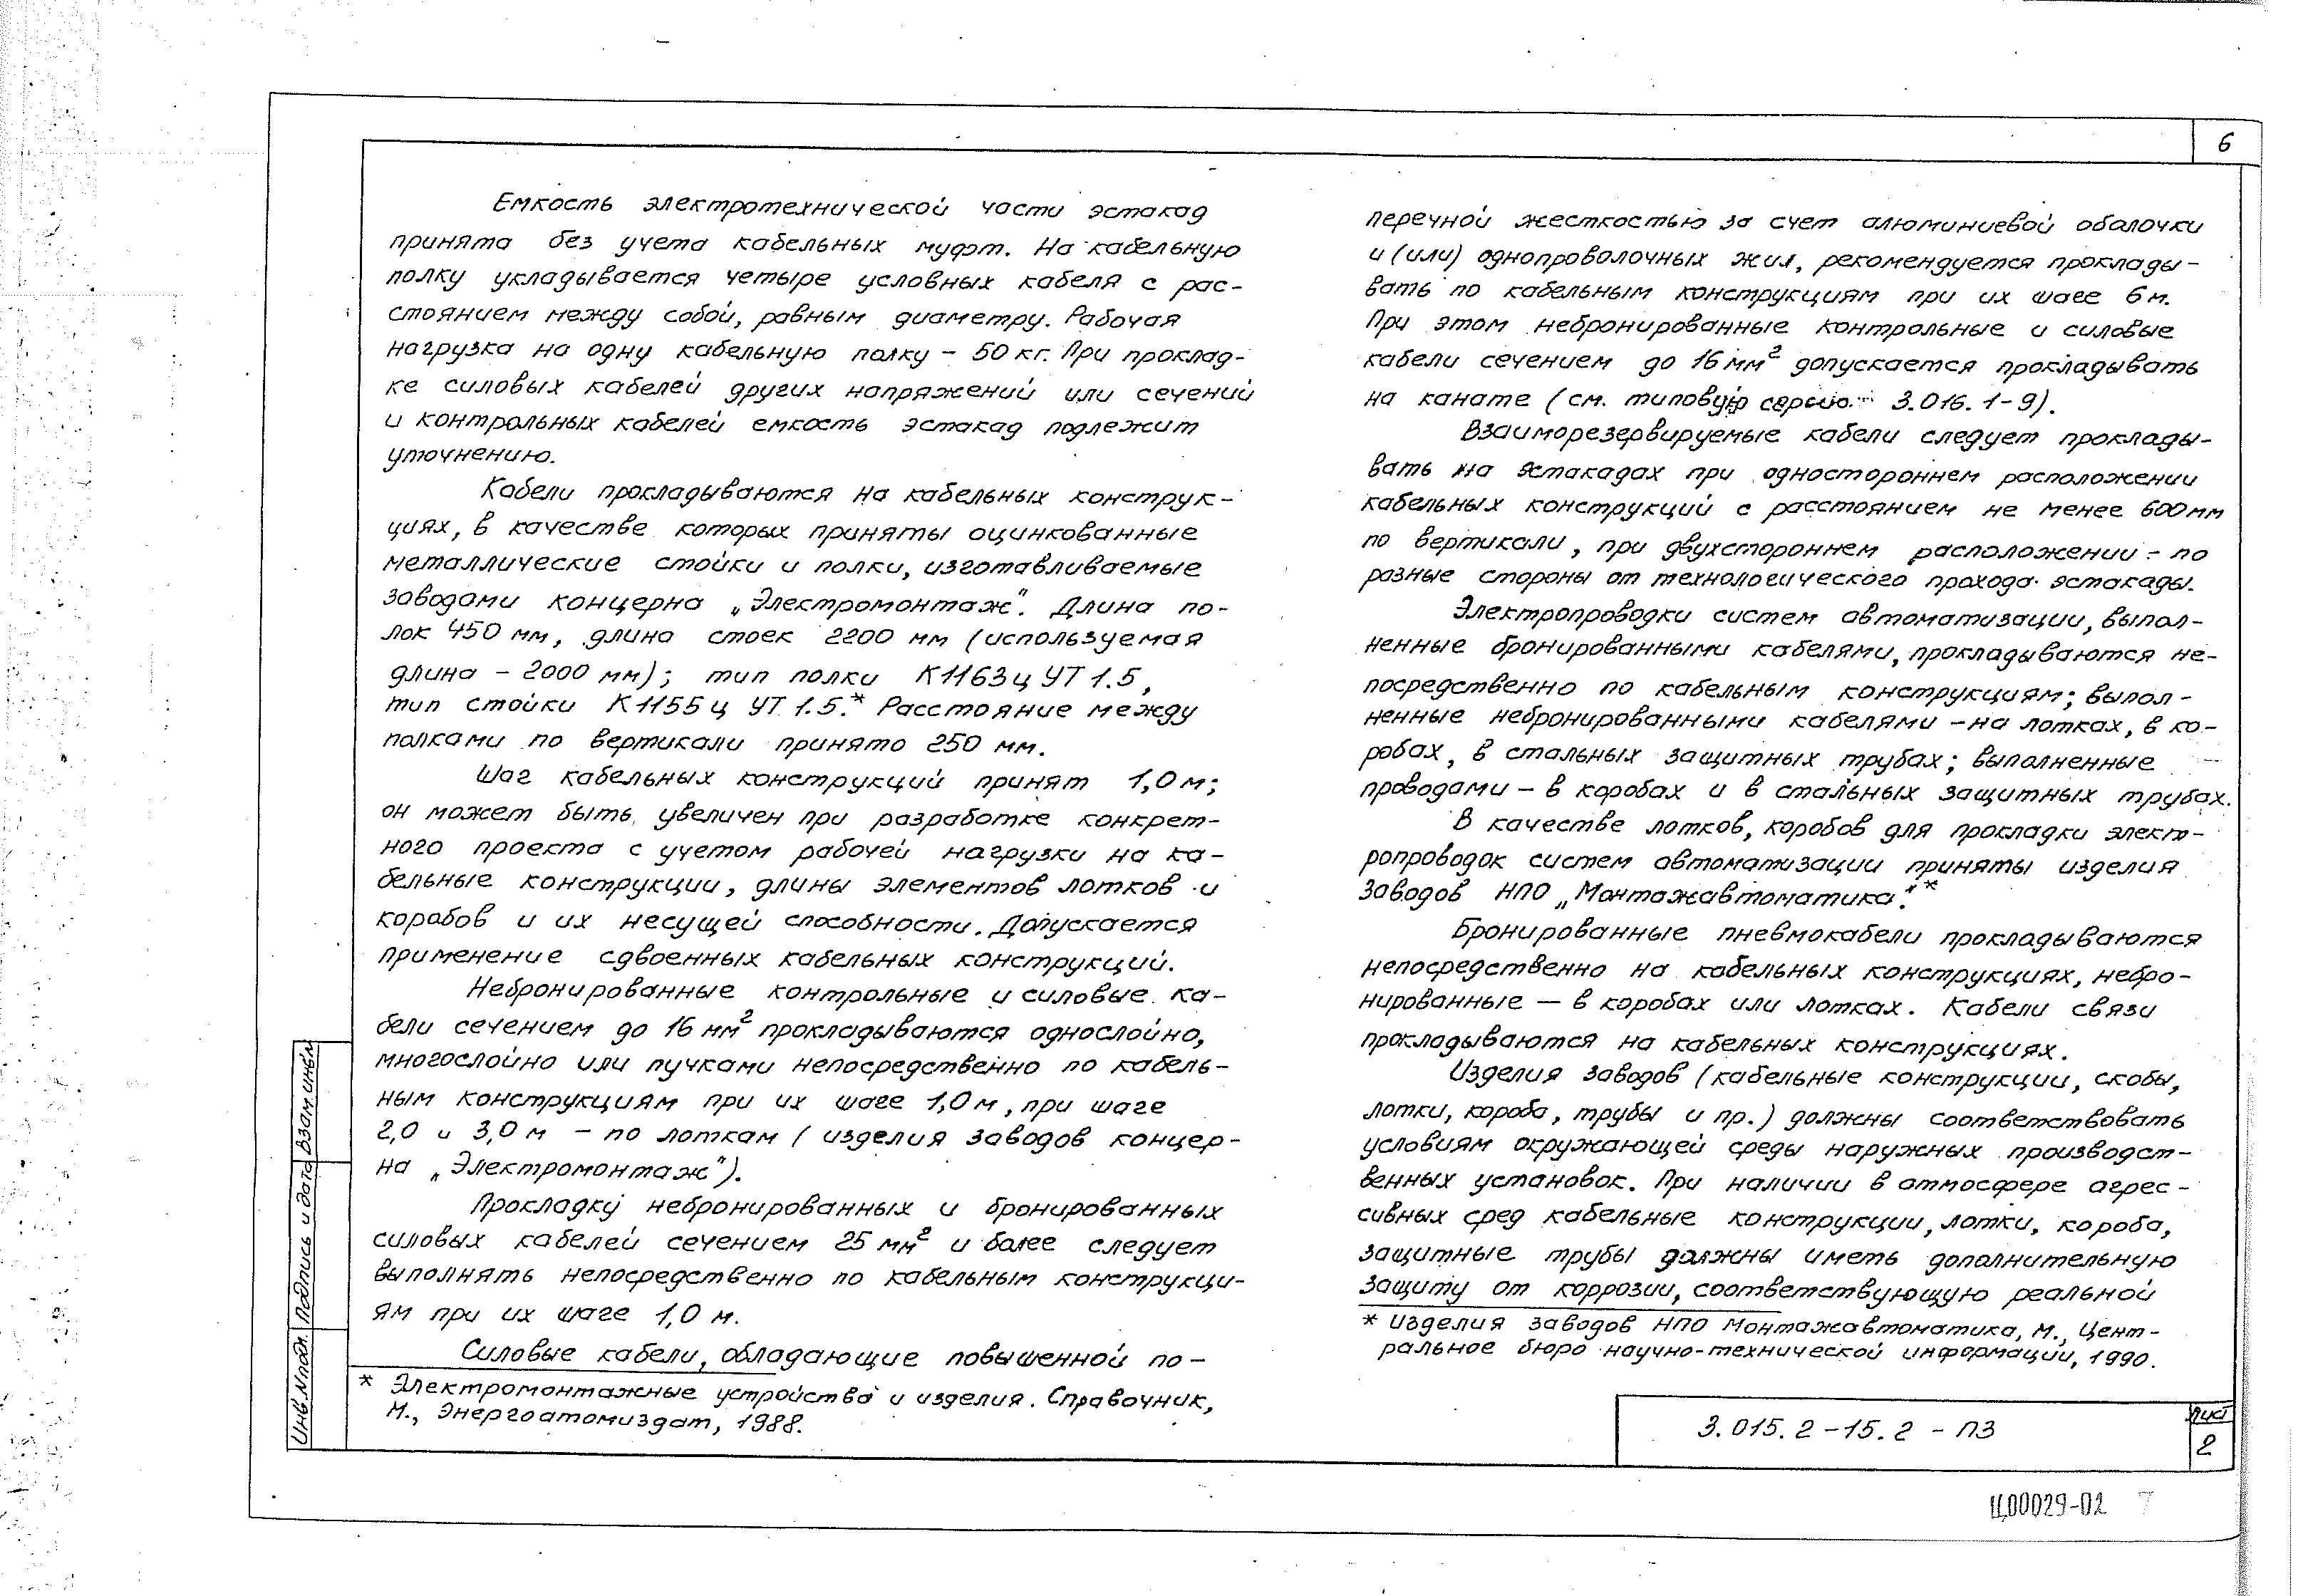 6
Емкость электротехнической части эстакад
принята без учета кабельных муфт. На кабельную
полку укладывается четыре условных кабеля с рас-
стоянием между собой, равным диаметру. Рабочая
нагрузка на одну кабельную полку – 50 кг. При проклад-
ке силовых кабелей других напряжений или сечений
и контрольных кабелей емкость эстакад подлежит
уточнению.
Кабели прокладываются на кабельных конструк-
циях, в качестве которых приняты оцинкованные
металлические стойки и полки, изготавливаемые
заводами концерна „Электромонтаж". Длина по-
лок 450 мм, длина стоек 2200 мм (используемая
длина – 2000 мм); тип полки К1163ц УТ 1.5,
тип стойки К1155ц УТ 1.5.* Расстояние между
полками по вертикали принято 250 мм.
Шаг кабельных конструкций принят 1,0 м;
он может быть увеличен при разработке конкрет-
ного проекта с учетом рабочей нагрузки на ка-
бельные конструкции, длины элементов лотков и
коробов и их несущей способности. Допускается
применение сдвоенных кабельных конструкций.
Небронированные контрольные и силовые ка-
бели сечением до 16 мм² прокладываются однослойно,
многослойно или пучками непосредственно по кабель-
ным конструкциям при их шаге 1,0 м, при шаге
2,0 и 3,0 м – по лоткам (изделия заводов концер-
на „Электромонтаж").
Прокладку небронированных и бронированных
силовых кабелей сечением 25 мм² и более следует
выполнять непосредственно по кабельным конструкци-
ям при их шаге 1,0 м.
Силовые кабели, обладающие повышенной по-
* Электромонтажные устройства и изделия. Справочник,
М., Энергоатомиздат, 1988.
перечной жесткостью за счет алюминиевой оболочки
и (или) однопроволочных жил, рекомендуется проклады-
вать по кабельным конструкциям при их шаге 6 м.
При этом небронированные контрольные и силовые
кабели сечением до 16 мм² допускается прокладывать
на канате (см. типовую серию 3.016.1-9).
Взаиморезервируемые кабели следует проклады-
вать на эстакадах при одностороннем расположении
кабельных конструкций с расстоянием не менее 600 мм
по вертикали, при двухстороннем расположении – по
разные стороны от технологического прохода эстакады.
Электропроводки систем автоматизации, выпол-
ненные бронированными кабелями, прокладываются не-
посредственно по кабельным конструкциям; выпол-
ненные небронированными кабелями – на лотках, в ко-
робах, в стальных защитных трубах; выполненные
проводами – в коробах и в стальных защитных трубах.
В качестве лотков, коробов для прокладки элект-
ропроводок систем автоматизации приняты изделия
заводов НПО „Монтажавтоматика".*
Бронированные пневмокабели прокладываются
непосредственно на кабельных конструкциях, небро-
нированные – в коробах или лотках. Кабели связи
прокладываются на кабельных конструкциях.
Изделия заводов (кабельные конструкции, скобы,
лотки, короба, трубы и пр.) должны соответствовать
условиям окружающей среды наружных производст-
венных установок. При наличии в атмосфере агрес-
сивных сред кабельные конструкции, лотки, короба,
защитные трубы должны иметь дополнительную
защиту от коррозии, соответствующую реальной
* Изделия заводов НПО Монтажавтоматика, М., Цент-
ральное бюро научно-технической информации, 1990.
Инв. N подл. Подпись и дата Взам. инв. N
3.015.2-15.2 - ПЗ
Лист
2
Ц00029-02 7